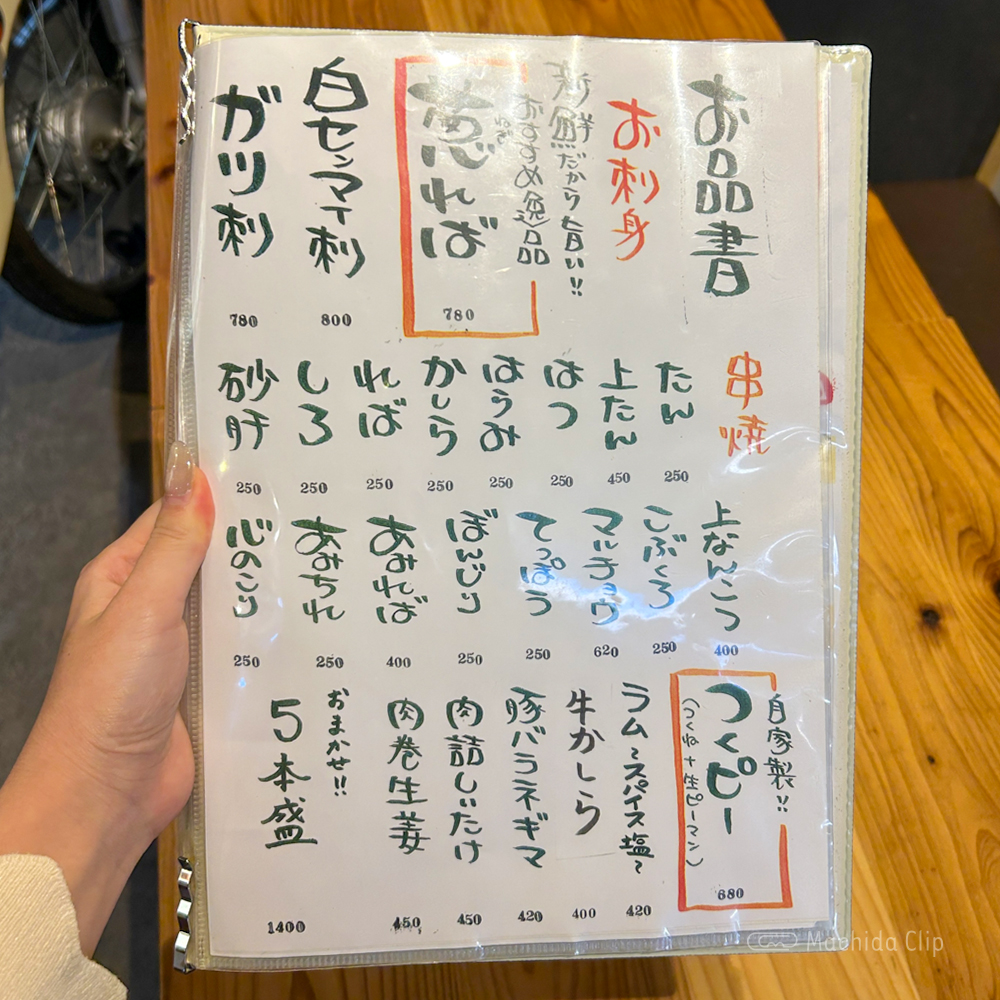 お品書
お刺身
新鮮だから旨い!!
おすすめ逸品
れば
780
白センマイ刺
800
ガツ刺
780
串焼
たん
250
上たん
450
はつ
250
はらみ
250
かしら
250
れば
250
しろ
250
砂肝
250
上なんこつ
400
こぶくろ
250
マルチョウ
620
てっぽう
250
ぼんじり
250
あみれば
400
あみちれ
250
心のこり
250
自家製!!
つくピー
(つくね+生ピーマン)
680
ラム~スパイス塩~
420
牛かしら
400
豚バラネギマ
420
肉詰しいたけ
450
肉巻生姜
450
おまかせ!!
5本盛
1400
Machida Clip